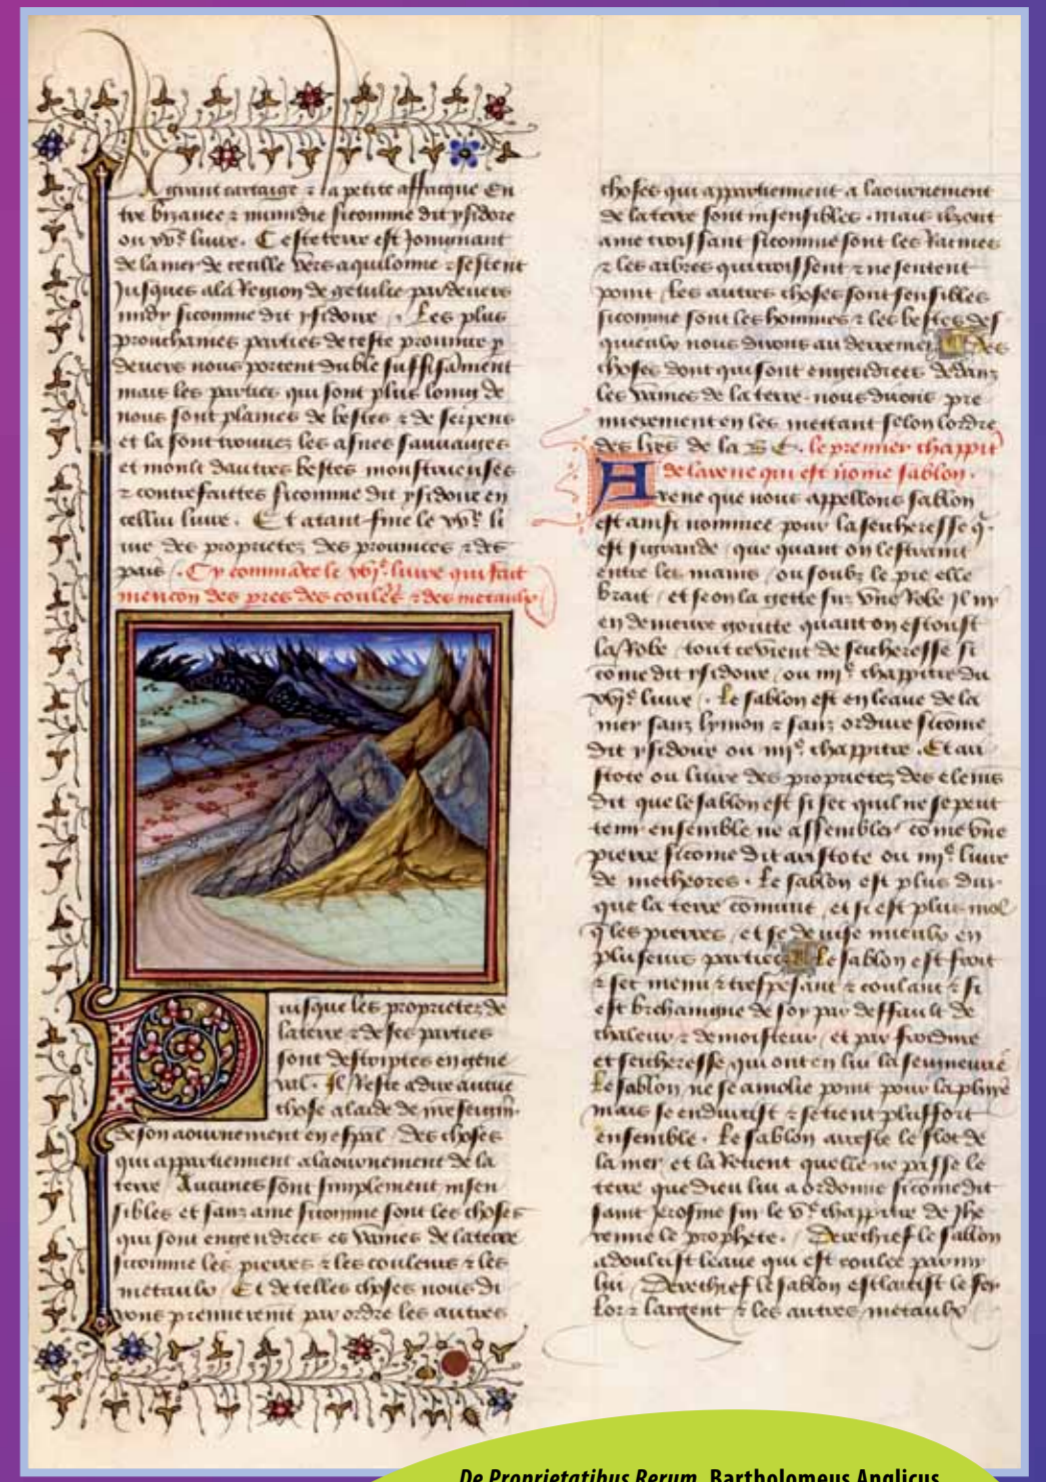 grant cartaige & la petite affricque En
tre bizance & numidie sicomme dit ysidore
ou xv.e liure. Ceste terre est Joingnant
de la mer de cecille vers aquilonne & sestent
Jusques ala Region de getulie pardeuers
midy sicomme dit ysidore. Les plus
prouchaines parties de ceste prouince p
deuers nous portent du ble suffisament
mais les parties qui sont plus loing de
nous sont plaines de bestes & de serpens
et la sont trouuez les asnes sauuaiges
et moult dautres bestes monstrueuses
& contrefaittes sicomme dit ysidore en
cellui liure. Et atant fine le xv.e li
ure des proprietez des prouinces & des
pais. Cy commance le xvi.e liure qui fait
mencon des pres des coules & des metaulx
Puisque les proprietez de
la terre & de ses parties
sont descriptes en gene
ral. Il Reste adire aucue
chose alaide de nreseign.
de son aournement en espal Des choses
qui appartiennent alaournement de la
terre Aucunes sont simplement insen
sibles et sans ame sicomme sont les choses
qui sont engendrees es vaines de la terre
sicomme les pierres & les couleurs & les
metaulx Et de telles choses nous di
rons premierement par ordre les autres
choses qui appartiennent a laournement
de la terre sont insensibles. mais ilz ont
ame croissant sicomme sont les Racines
& les arbres qui croissent & ne sentent
point les autres choses sont sensibles
sicomme sont les hommes & les bestes des
quieulx nous dirons au derrenier Des
choses dont qui sont engendrees dedans
les vaines de la terre. nous dirons pre
mierement en les mettant selon lordre
des lres de la B C. le premier chappit
de larene qui est nome sablon.
Arene que nous appellons sablon
est ainsi nommee pour la seicheresse q.
est si grande que quant on lestraint
entre les mains ou soubz le pie elle
brait et se on la gette sur vne Robe Il ny
en demeure goutte quant on escoust
la Robe tout ce vient de seicheresse si
come dit ysidore ou iiii.e chappitre du
xvi.e liure. Le sablon est en leaue de la
mer sans lymon & sans ordure sicome
dit ysidore ou iiii.e chappitre. Et ari
stote ou liure des proprietez des elemens
dit que le sablon est si sec quil ne se peut
tenir ensemble ne assembler come vne
pierre sicome dit aristote ou iiii.e liure
de metheores. Le sablon est plus dur
que la terre comune et si est plus mol
q les pierres et se deuise mieulx en
plusieurs parties Le sablon est froit
& sec menu & trespesant & coulant & si
est brehaingne de soy par deffault de
chaleur & de moisteur et par froidure
et seicheresse qui ont en lui la seigneurie
Le sablon ne se amolie point pour la pluye
mais se endurcist & se tient plus fort
ensemble. Le sablon arreste le flot de
la mer et la Retient quelle ne passe le
terme que Dieu lui a ordonne sicome dit
saint Jerosme sur le v.e chappitre de Jhe
remie le prophete. Derechief le sablon
adoulcist leaue qui est coulee parmy
lui Derechief le sablon esclarcist le fer
lor & largent & les autres metaulx
De Proprietatibus Rerum, Bartholomeus Anglicus